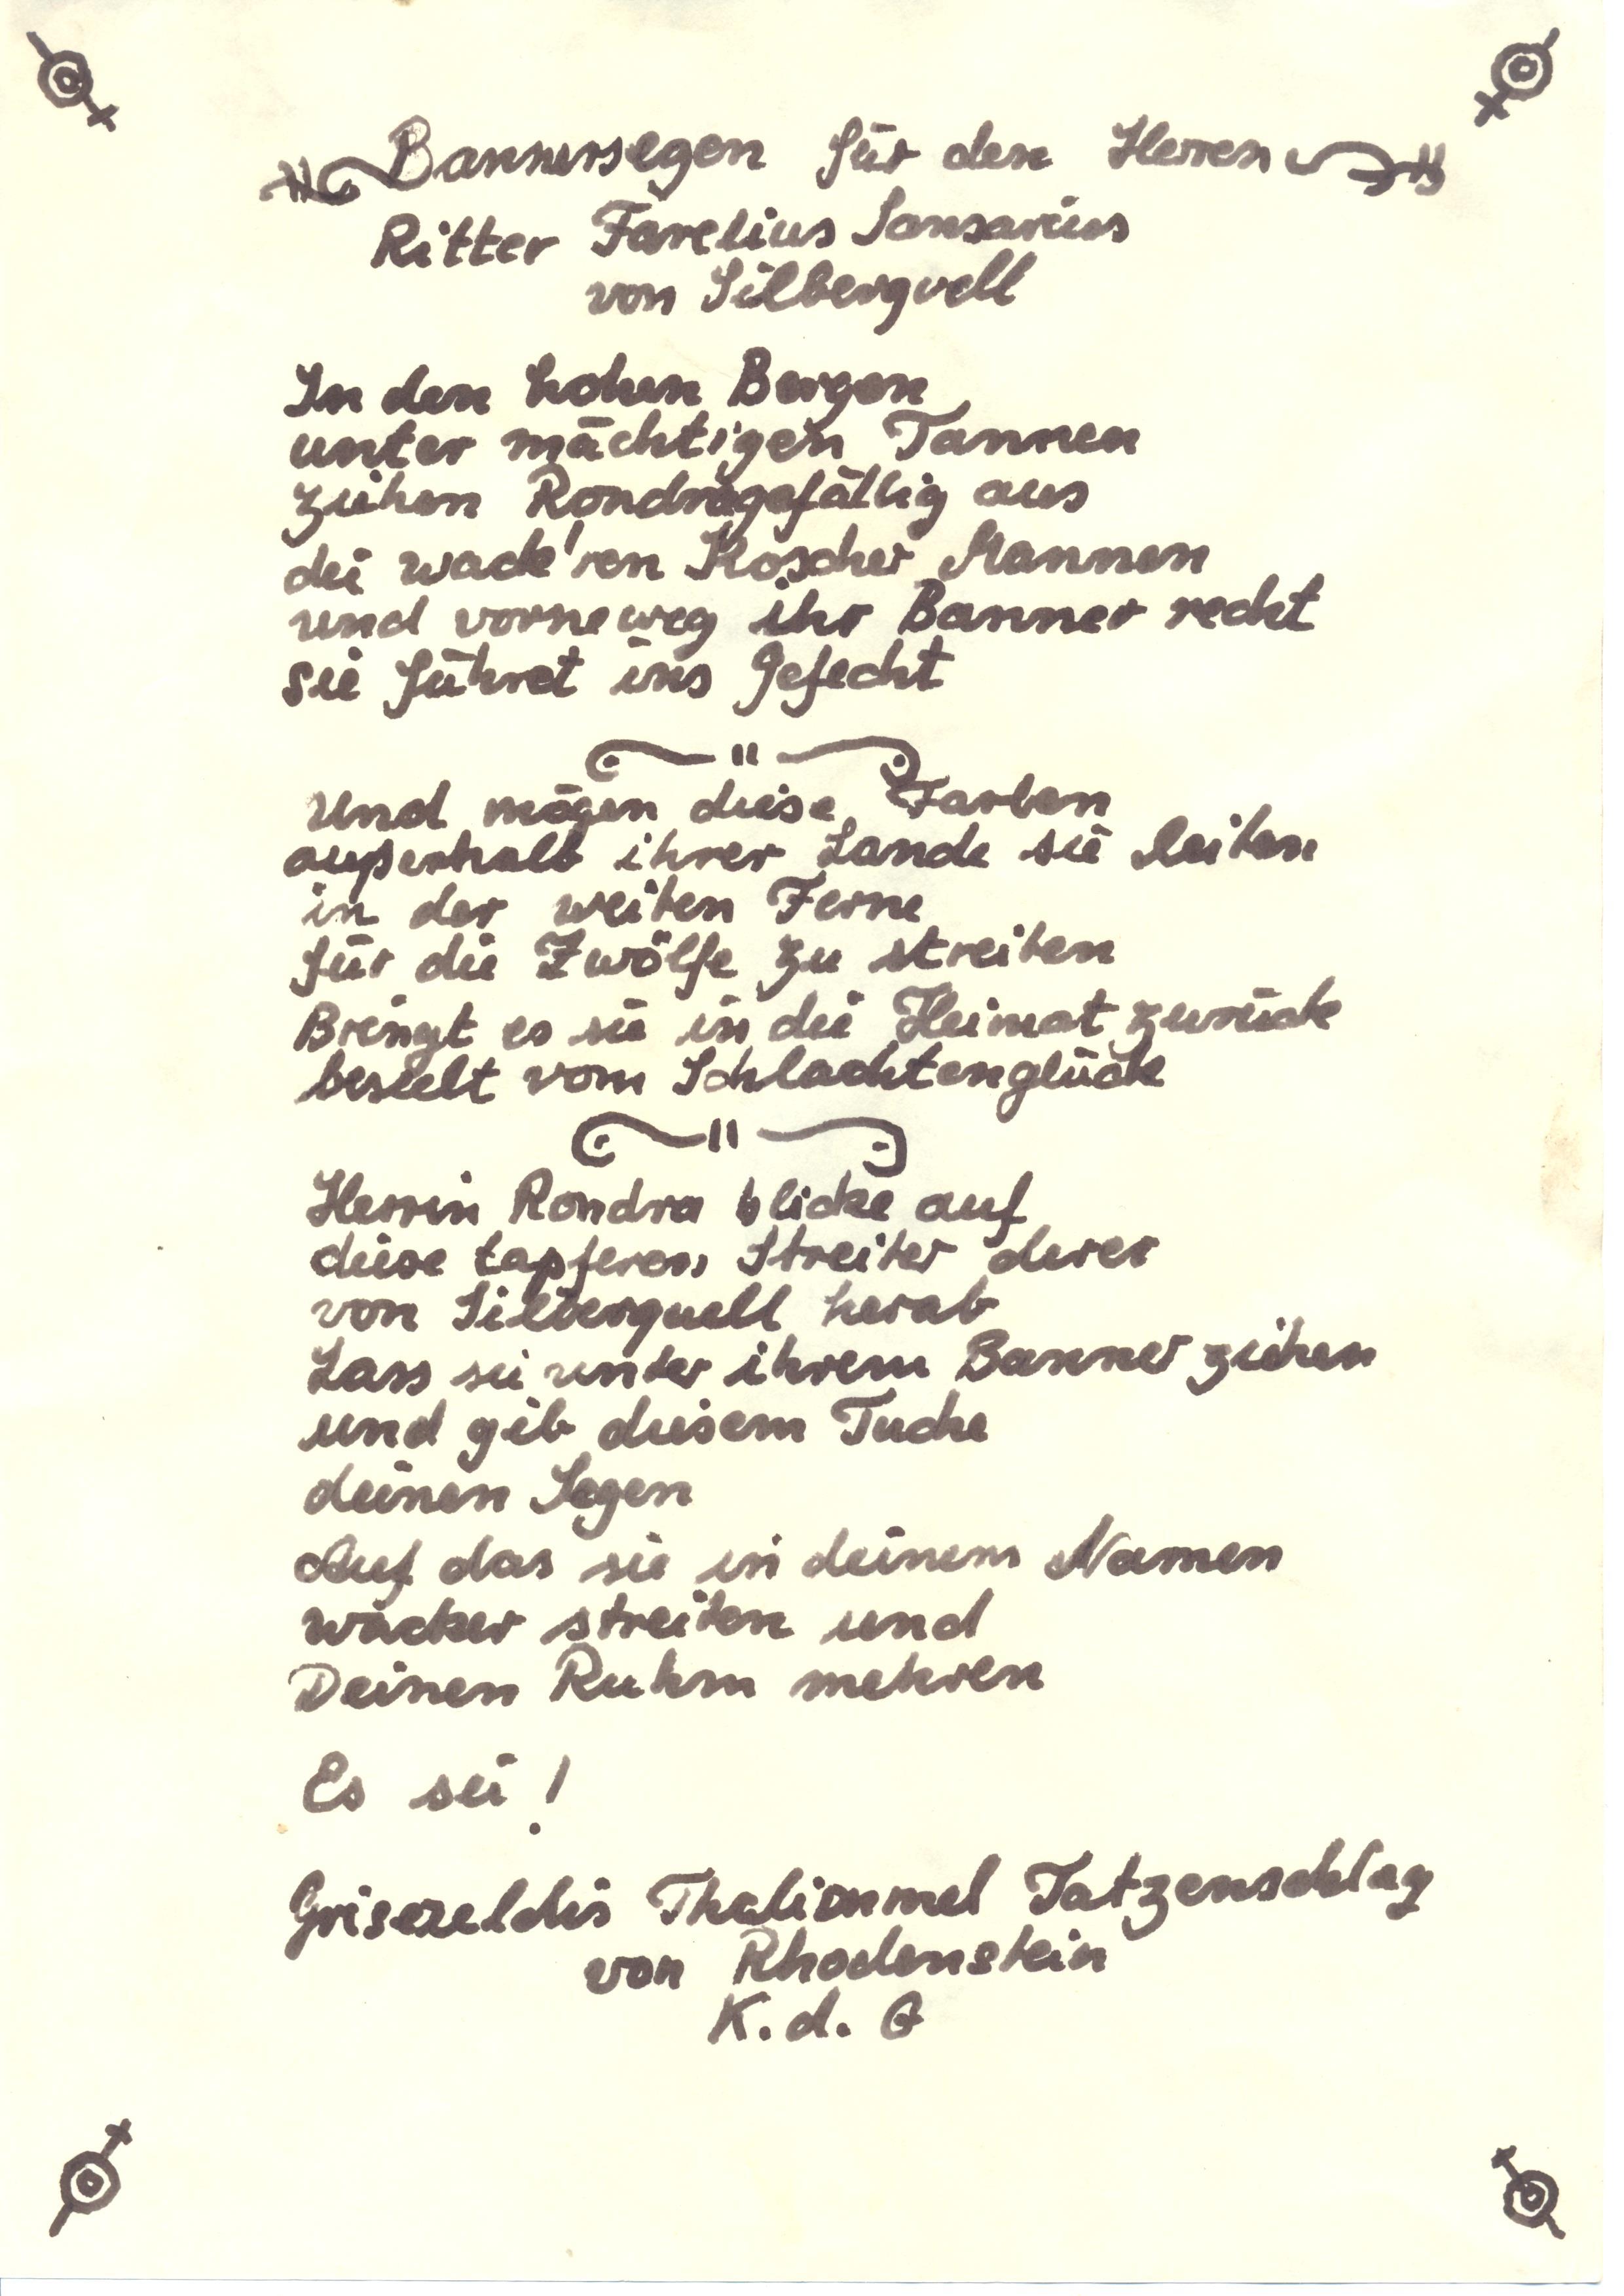 Bannersegen für den Herren
Ritter Farelius Sansarius
von Silberquell
In den hohen Bergen
unter mächtigen Tannen
ziehen Rondragefällig aus
die wack'ren Koscher Mannen
und vorneweg ihr Banner recht
sie führet ins Gefecht
Und mögen diese Farben
außerhalb ihrer Lande sie leiten
in der weiten Ferne
für die Zwölfe zu streiten
Bringt es sie in die Heimat zurück
beseelt vom Schlachtenglück
Herrin Rondra blicke auf
diese tapferen Streiter derer
von Silberquell herab
Lass sie unter ihrem Banner ziehen
und gib diesem Tuche
deinen Segen
Auf das sie in deinem Namen
wacker streiten und
Deinen Ruhm mehren
Es sei!
Tatzenschlag
von Rhodenstein
K. d. G